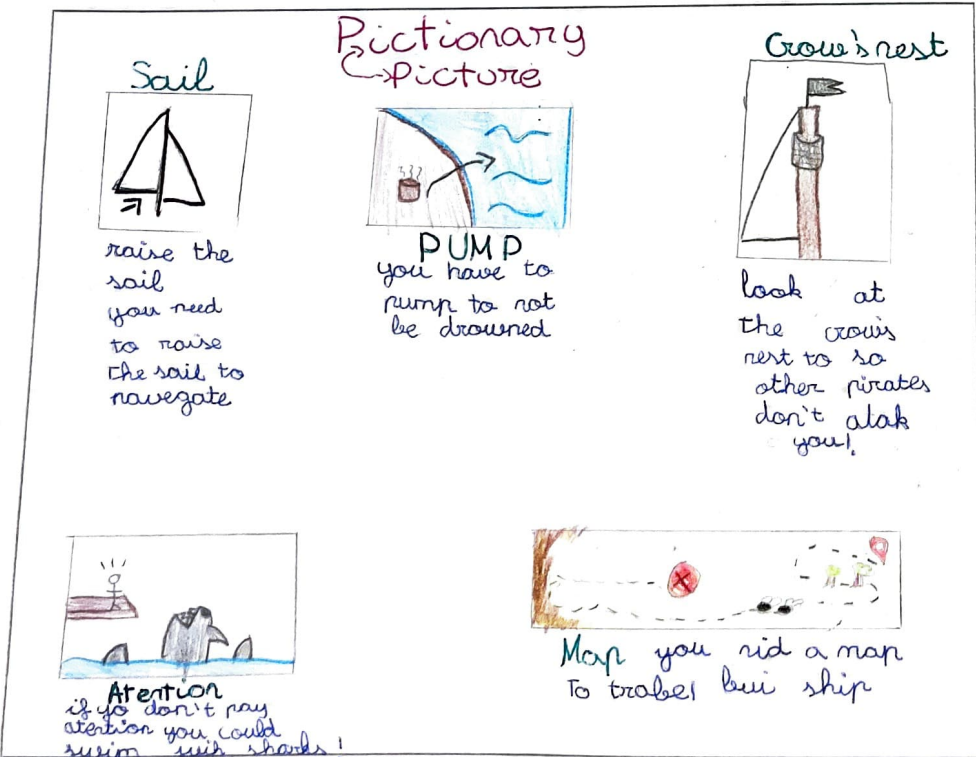 Pictionary
Picture
Sail
raise the
sail
you need
to raise
the sail to
navegate
PUMP
you have to
pump to not
be drowned
Crow's nest
look at
the crow's
nest to so
other pirates
don't atak
you!
Atention
if yo don't pay
atention you could
swim wih sharks!
Map you nid a map
To trabel bui ship